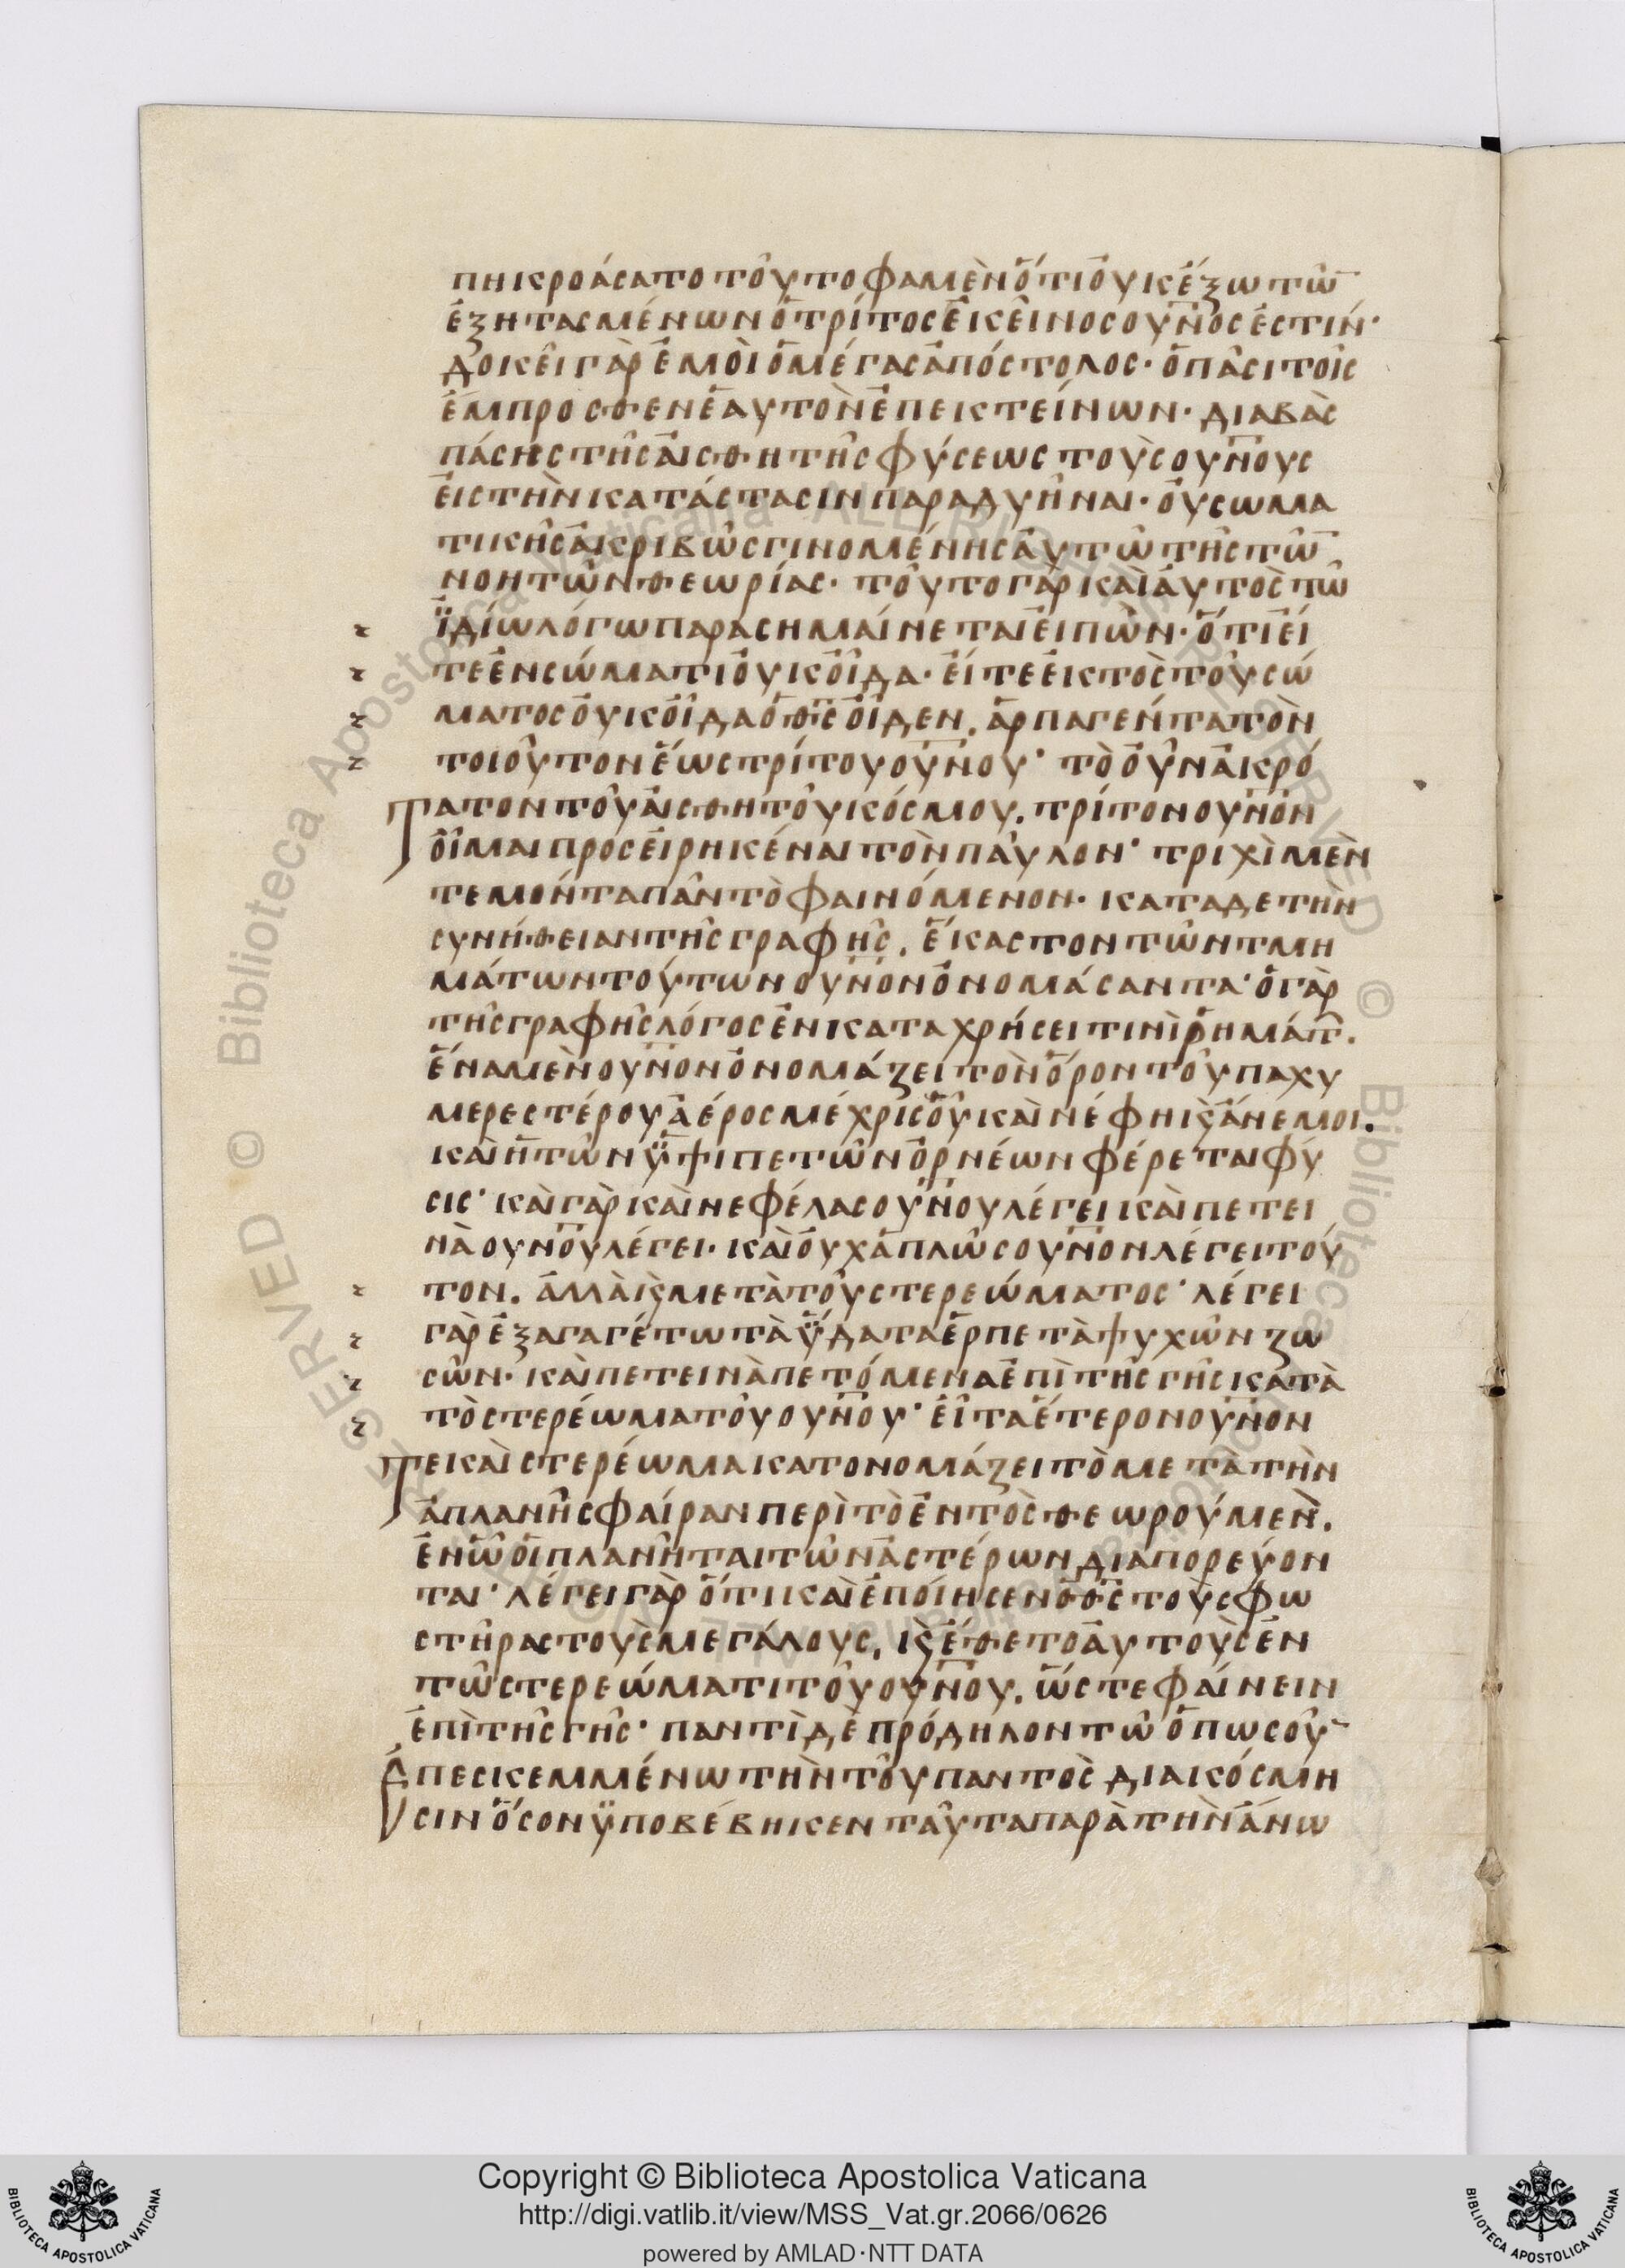 πηκροάσατο τοῦτο φαμὲν ὅτι οὐκ ἔξω τῶ̅
ἐξητασμένων ὁ τρίτος ἐκεῖνος οὐν̅ός ἐστιν·
δοκεῖ γὰρ ἐμοὶ ὁ μέγας ἀπόστολος· ὁ πᾶσι τοῖς
ἔμπροσθεν ἑαυτὸν ἐπεκτείνων· διαβὰς
πάσης τῆς αἰσθητῆς φύσεως τοὺς οὐν̅ους
εἰς τὴν κατάστασιν παραδυῆναι· οὐ σωμα
τικῆς ἀκριβῶς γινομένης αὐτῶ τῆς τῶ̅
νοητῶν θεωρίας· τοῦτο γὰρ καὶ αὐτὸς τῶ
ϊδίω λόγω παρασημαίνεται εἰπὼν· ὅτι εἴ
τε ἐν σώματι οὐκ οἶδα· εἴτε ἐκτὸς τοῦ σώ
ματος οὐκ οἶδα ὁ θ̅ς̅ οἶδεν. ἁρπαγέντα τὸν
τοιοῦτον ἕως τρίτου οὐν̅ου· τὸ οὖν ἀκρό
τατον τοῦ αἰσθητοῦ κόσμου. τρίτον οὐν̅ὸν
οἶμαι προσειρηκέναι τὸν παῦλον· τριχὶ μὲν
τεμόντα πᾶν τὸ φαινόμενον· κατα δε τὴν
συνήθειαν τῆς γραφῆς. ἕκαστον τῶν τμη
μάτων τούτων οὐν̅ὸν ὀνομάσαντα· ὁ γὰρ
τῆς γραφῆς λόγος ἐν καταχρήσει τινὶ ῥημάτ̅.
ἕνα μὲν οὐν̅ὸν ὀνομάζει τὸν ὅρον τοῦ παχυ
μερεστέρου ἀέρος μέχρις οὗ καὶ νέφη κ̣ ἄνεμοι.
καὶ ἡ τῶν ὑψιπετῶν ὀρνέων φέρεται φύ
σις· καὶ γὰρ καὶ νεφέλας οὐν̅ου λέγει καὶ πετει
νὰ οὐν̅οῦ λέγει· καὶ οὐχ ἁπλῶς οὐν̅ὸν λέγει τοῦ
τον. ἀλλὰ κ̣ μετὰ τοῦ στερεώματος· λέγει
γὰρ ἐξαγαγέτω τὰ ὕδατα ἑρπετὰ ψυχῶν ζω
σῶν· καὶ πετεινὰ πετόμενα ἐπὶ τῆς γῆς κατὰ
τὸ στερέωμα τοῦ οὐν̅οῦ· εἶτα ἕτερον οὐν̅ὸν
τε καὶ στερέωμα κατονομάζει τὸ μετὰ τὴν
ἀπλανῆ σφαίραν περὶ τὸ ἐντὸς θεωρούμεν̅.
ἐν ὧ οἱ πλανῆται τῶν ἀστέρων διαπορεύον
ται· λέγει γὰρ ὅτι καὶ ἐποίησεν ὁ θ̅ς̅ τοὺς φω
στῆρας τοὺς μεγάλους, κ̣ ἔθετο αὐτοὺς ἐν
τῶ στερεώματι τοῦ οὐν̅οῦ. ὥστε φαίνειν
ἐπὶ τῆς γῆς· παντὶ δὲ πρόδηλον τῶ ὁπωσοῦ̅
ἐπεσκεμμένω τὴν τοῦ παντὸς διακόσμη
σιν ὅσον ϋποβέβηκεν ταῦτα παρὰ τὴν ἄνω
Copyright © Biblioteca Apostolica Vaticana
http://digi.vatlib.it/view/MSS_Vat.gr.2066/0626
powered by AMLAD·NTT DATA
BIBLIOTECA APOSTOLICA VATICANA
BIBLIOTECA APOSTOLICA VATICANA